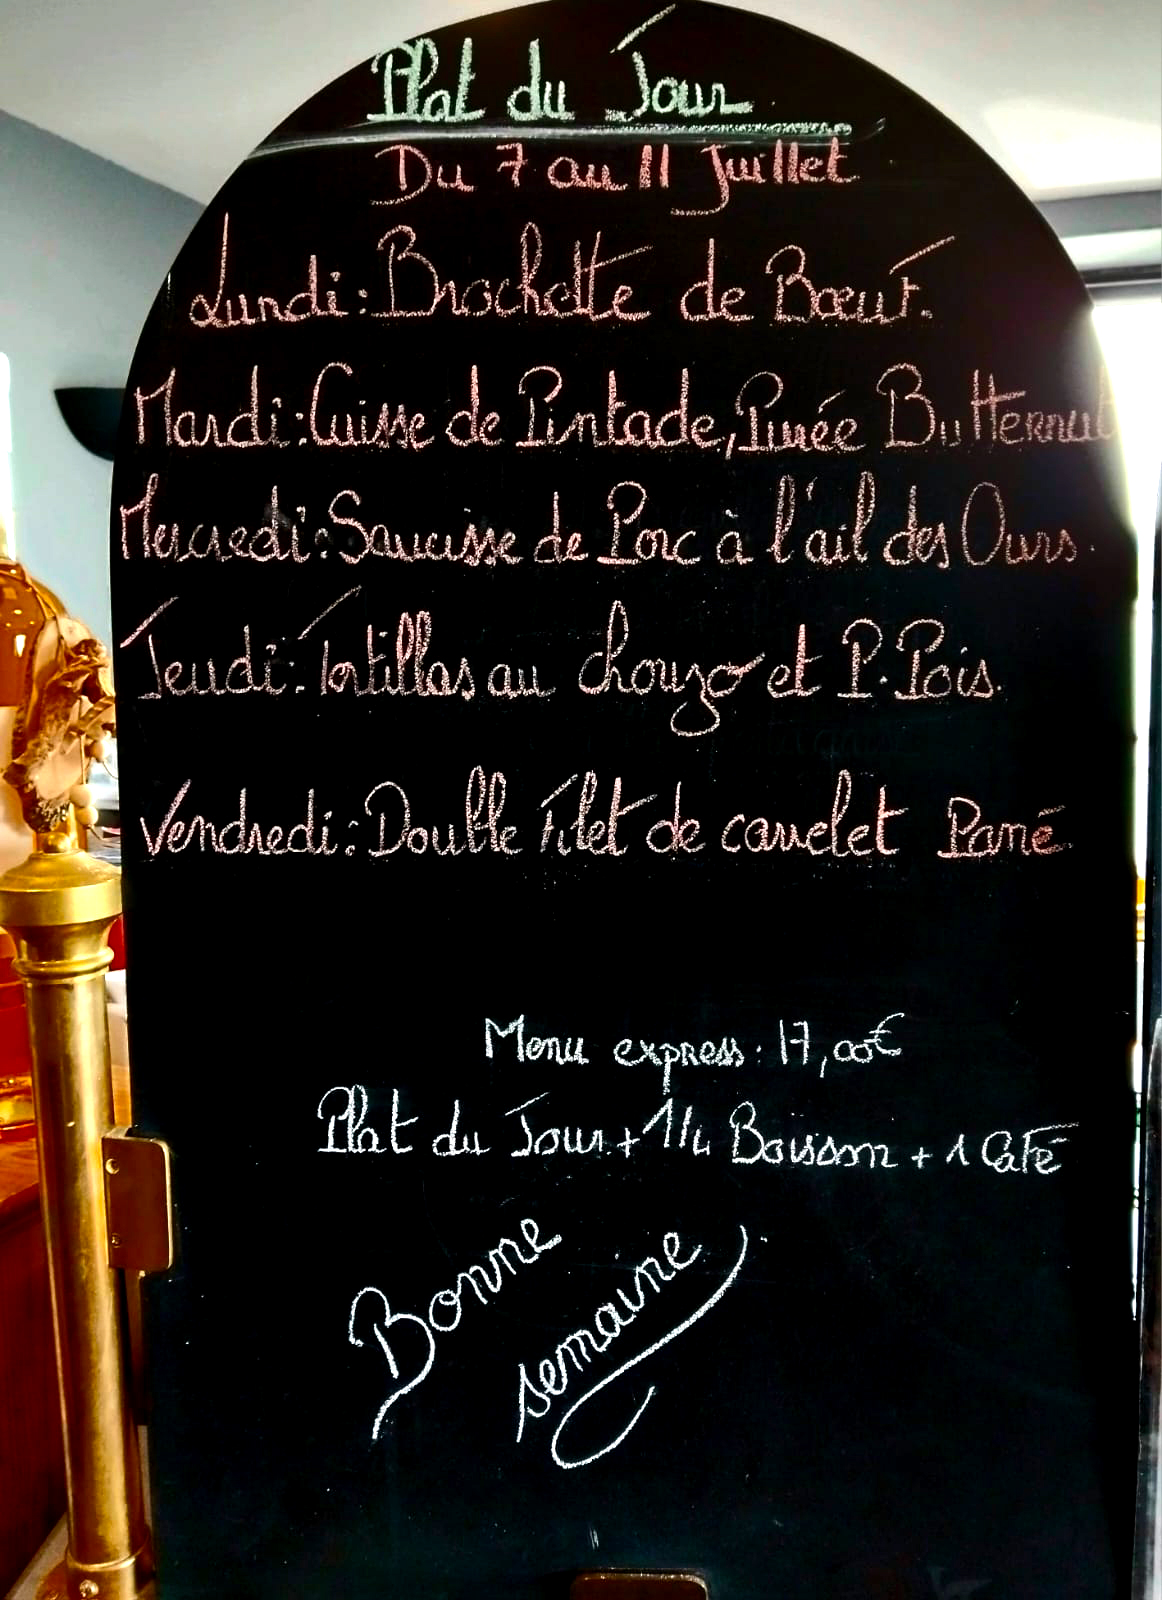 Plat du Jour
Du 7 au 11 Juillet
Lundi : Brochette de Bœuf.
Mardi : Cuisse de Pintade, Purée Butternut
Mercredi : Saucisse de Porc à l'ail des Ours.
Jeudi : Tortillas au chorizo et P. Pois.
Vendredi : Double Filet de carrelet Pané
Menu express : 17,00€
Plat du Jour + 1/4 Boisson + 1 Café
Bonne
semaine